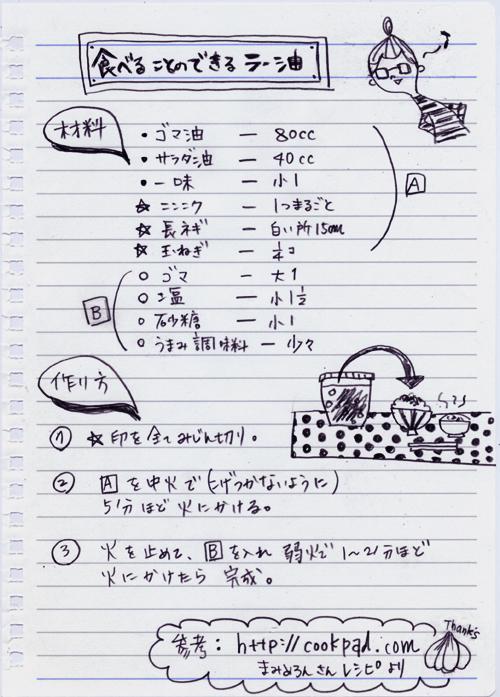 食べることのできるラー油
材料
• ゴマ油 ー 80cc
• サラダ油 ー 40cc
• 一味 ー 小1
☆ ニンニク ー 1つまるごと
☆ 長ネギ ー 白い所15cm
☆ 玉ねぎ ー 1/4コ
A
○ ゴマ ー 大1
○ 塩 ー 小1 1/2
○ 砂糖 ー 小1
○ うまみ調味料 ー 少々
B
作り方
① ☆印を全てみじん切り。
② Aを中火で(こげつかないように)
5分ほど火にかける。
③ 火を止めて、Bを入れ弱火で1〜2分ほど
火にかけたら完成。
参考: http://cookpad.com
まみめろんさんレシピより
Thank's